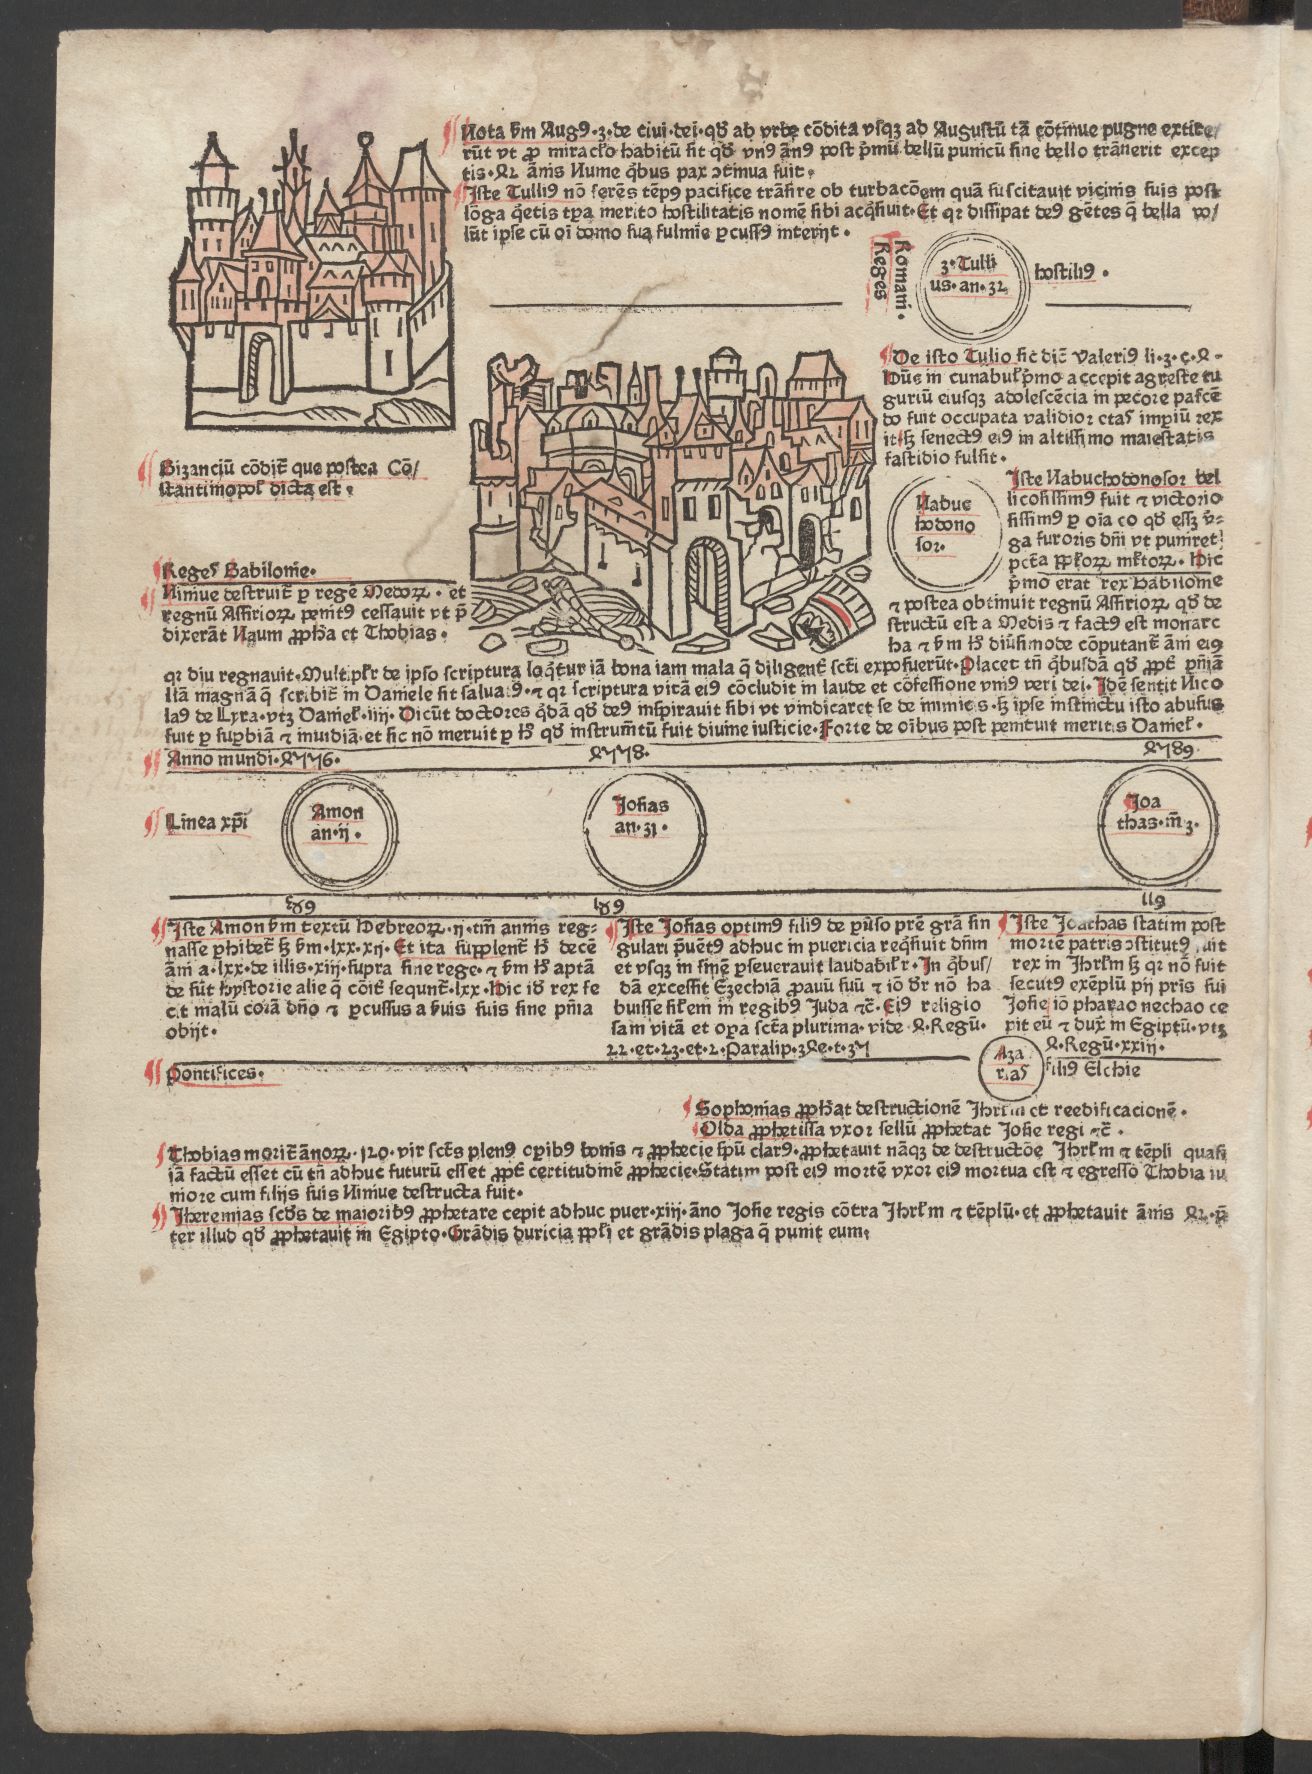 Nota ẜm Augꝰ·3·de ciui·dei·qd̕ ab vrbe cōdita vsqꝫ ad Augustū tā cōtinue pugne extite/
rūt vt ꝓ miraclo habitū sit qd̕ vnꝰ ānꝰ post p̄mū bellū punicū sine bello trāsierit excep
tis·ꝝ āmis Nume qbus pax ↄtinua fuit·
Iste Tulliꝰ nō ferēs tēpꝰ pacifice trāsire ob turbacōem quā suscitauit vicinis suis post
lōga qetis tꝑa merito hostilitatis nomē sibi acqsiuit·Et qꝛ dissipat deꝰ gētes q̄ bella vo/
lūt ipse cū oī domo sua fulmie ꝑcussꝰ interijt·
Romani·
Reges
3·Tulli
us·an·32
hostiliꝰ·
De isto Tulio sic dic̄ Valeriꝰ li·3·c·4·
Dūs in cunabul̕ p̄mo accepit agreste tu
guriū eiusqꝫ adolescēcia in pecore pascē
do fuit occupata validior etas impiū rex
it·sꝫ senectꝰ eiꝰ in altissimo maiestatis
fastidio fulsit·
Bizanciū cōdit̄ que postea Cō/
stantinopol̕ dicta est·
Nabuc
hodono
sor·
Iste Nabuchodonosor bel
licosissimꝰ fuit ⁊ victorio
sissimꝰ ꝑ oīa eo qd̕ essꝫ v̄=
ga furoris dn̄i vt puniret
pct̄a ꝓpl̕oꝝ ml̕toꝝ·Hic
p̄mo erat rex Babilonie
⁊ postea obtinuit regnū Assirioꝝ qd̕ de
structū est a Medis ⁊ factꝰ est monarc
ha ⁊ ẜm h̕ diūsimode cōputant̄ āni eiꝰ
Reges Babilonie·
Niniue destruit̄ ꝑ regē Medoꝝ·et
regnū Assirioꝝ penitꝰ cessauit vt p̄
dixerāt Naum ꝓph̄a et Thobias·
qꝛ diu regnauit·Multiplr̄ de ipso scriptura loqtur iā bona iam mala q̄ diligent̄ sct̄i exposuerūt·Placet tn̄ qbusdā qd̕ ꝓpt̄ pn̄iā
illā magnā q̄ scribit̄ in Daniele sit saluatꝰ·⁊ qꝛ scriptura vitā eiꝰ cōcludit in laude et cōfessione vniꝰ veri dei·Idē sentit Nico
laꝰ de Lyra·vtꝫ Daniel̕·iiij·Dicūt doctores qdā qd̕ deꝰ inspirauit sibi vt vindicaret se de inimicis·sꝫ ipse instinctu isto abusus
fuit ꝑ suꝑbiā ⁊ inuidiā·et sic nō meruit ꝑ h̕ qd̕ instrum̄tū fuit diuine iusticie·Forte de oībus post penituit meritis Daniel̕·
Anno mundi·4776·
4778·
4789
Linea xp̄i
Amon
an·ij·
Iosias
an·31·
Ioa
thas·m̄3·
Iste Amon ẜm textū Hebreoꝝ·ij·tm̄ annis reg=
nasse ꝑhibet̄ sꝫ ẜm·lxx·xij·Et ita supplent̄ h̕ decē
āni a·lxx·de illis·xiij·supra sine rege·⁊ ẜm h̕ aptā
de sūt hystorie alie q̄ cōit̄ sequnt̄·lxx·Hic id̕ rex fe
cit malū corā dn̄o ⁊ ꝑcussus a ẜuis suis sine pn̄ia
obijt·
Iste Iosias optimꝰ filiꝰ de ꝑūso pr̄e grā sin
gulari p̄uētꝰ adhuc in puericia reqsiuit dn̄m
et vsqꝫ in finē ꝑseuerauit laudabil̕r·In qbus/
dā excessit Ezechiā ꝓauū suū ⁊ iō d̕r nō ha
buisse sil̕em in regibꝰ Iuda ⁊c̄·Eiꝰ religio
sam vitā et oꝑa sct̄a plurima·vide·4·Regū·
22·et·23·et·2·Paralip·34·et·37
Iste Ioathas statim post
mortē patris ↄstitutꝰ fuit
rex in Ihrl̕m sꝫ qꝛ nō fuit
secutꝰ exēplū pij pris sui
Iosie iō pharao nechao ce
pit eū ⁊ dux̄ in Egiptū·vtꝫ
4·Regū·xxiij·
Pontifices·
Aza
rias
filiꝰ Elchie
Sophonias ꝓph̄at destructionē Ihrl̕m et reedificacionē·
Olda ꝓphetissa vxor sellū ꝓphetat Iosie regi ⁊c̄·
Thobias morit̄ ānoꝝ·120·vir sct̄s plenꝰ oꝑibꝰ bonis ⁊ ꝓphecie sp̄u clarꝰ·ꝓphetauit nāqꝫ de destructōe Ihrl̕m ⁊ tēpli quasi
iā factū esset cū tn̄ adhuc futurū esset ꝓpt̄ certitudinē ꝓphecie·Statim post eiꝰ mortē vxor eiꝰ mortua est ⁊ egresso Thobia iu
niore cum filijs suis Niniue destructa fuit·
Iheremias scd̕s de maioribꝰ ꝓphetare cepit adhuc puer·xiij·āno Iosie regis cōtra Ihrl̕m ⁊ tēplū·et ꝓphetauit ānis 41·p̄
ter illud qd̕ ꝓphetauit in Egipto·Grādis duricia ppl̕i et grādis plaga q̄ punit eum·